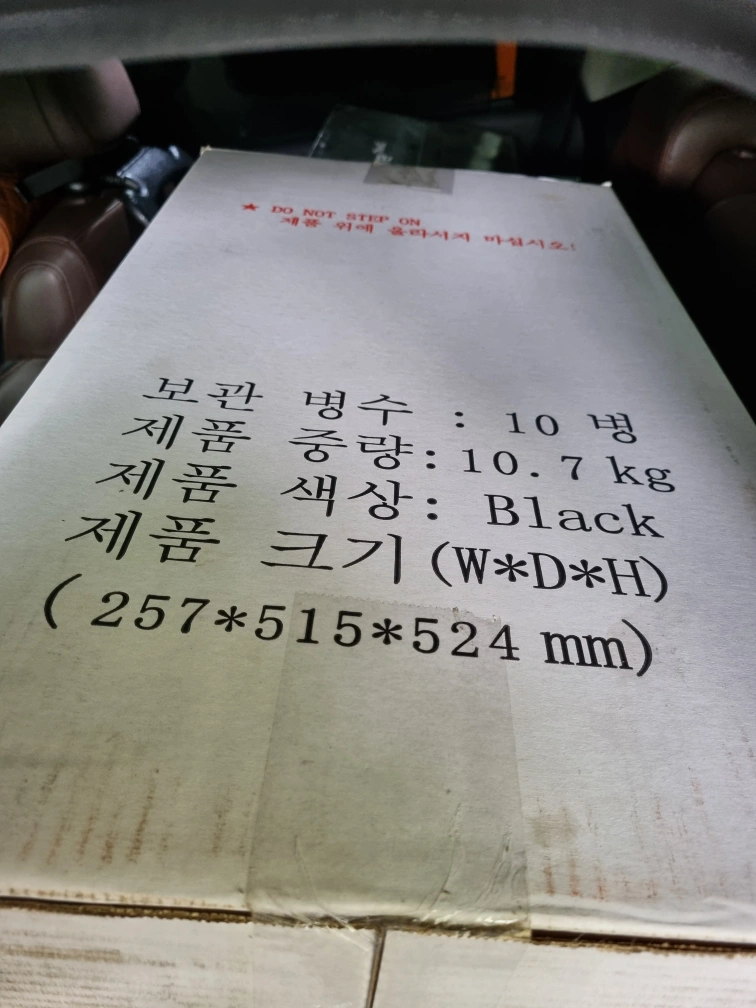 ★ DO NOT STEP ON
제품 위에 올라서지 마십시오!
보관 병수 : 10 병
제품 중량: 10.7 kg
제품 색상: Black
제품 크기(W*D*H)
( 257*515*524 mm)